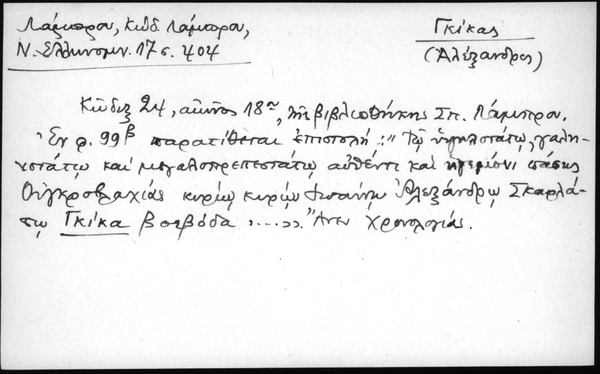 Λάμπρου, Κώδ. Λάμπρου,
Ν. Ελληνομν. 17 σ. 404
Γκίκας
(Αλέξανδρος)
Κώδιξ 24, αἰῶνος 18ου, τῆς βιβλιοθήκης Σπ. Λάμπρου.
Ἐν φ. 99β παρατίθεται ἐπιστολή: "Τῷ ὑψηλοτάτῳ, γαλη-
νοτάτῳ καὶ μεγαλοπρεπεστάτῳ αὐθέντῃ καὶ ἡγεμόνι πάσης
Οὑγκροβλαχίας κυρίῳ κυρίῳ Ἰωάννῃ Ἀλεξάνδρῳ Σκαρλά-
τῳ Γκίκα βοεβόδα .....". Ἄνευ χρονολογίας.